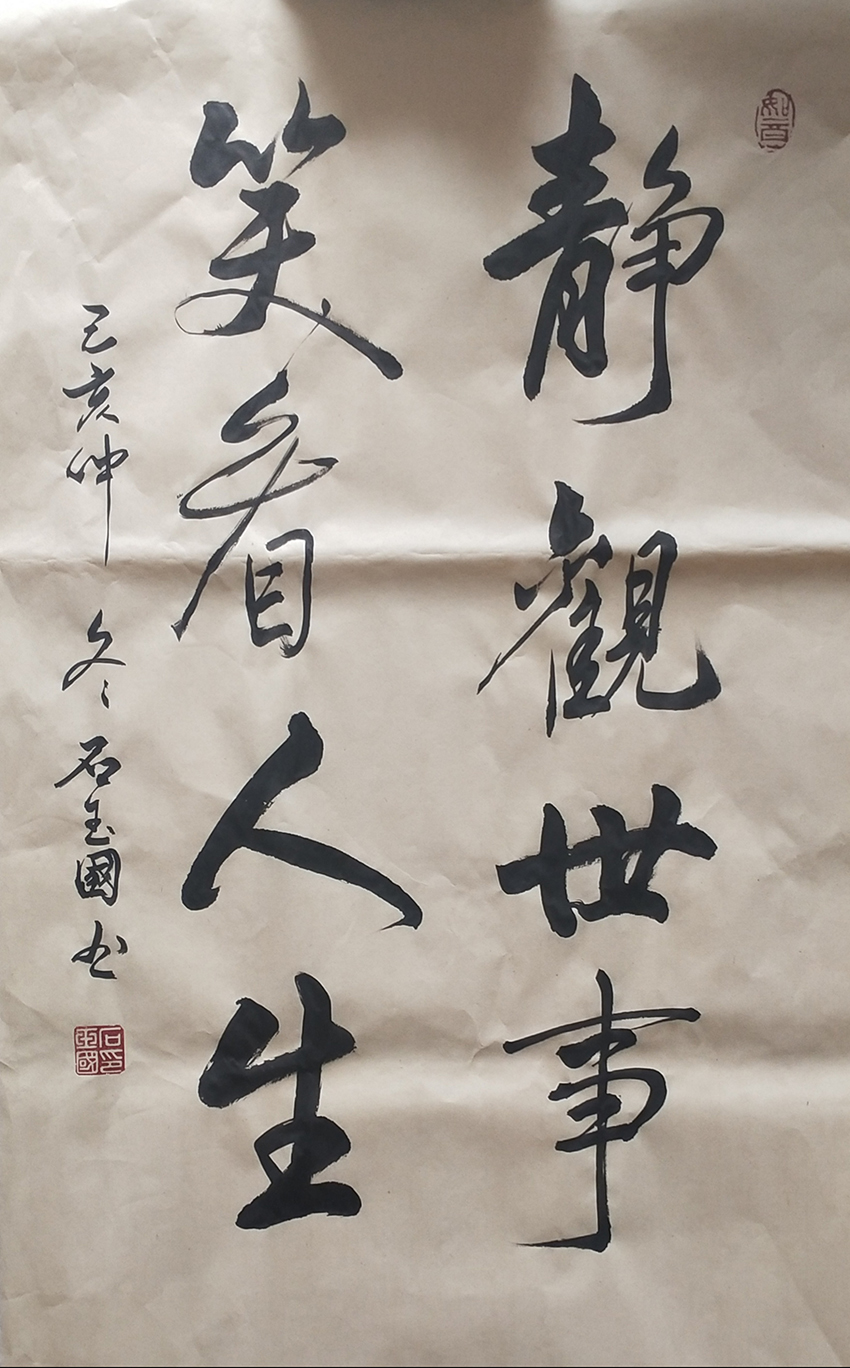 静觀世事
笑看人生
己亥仲冬石玉國书
石玉國印